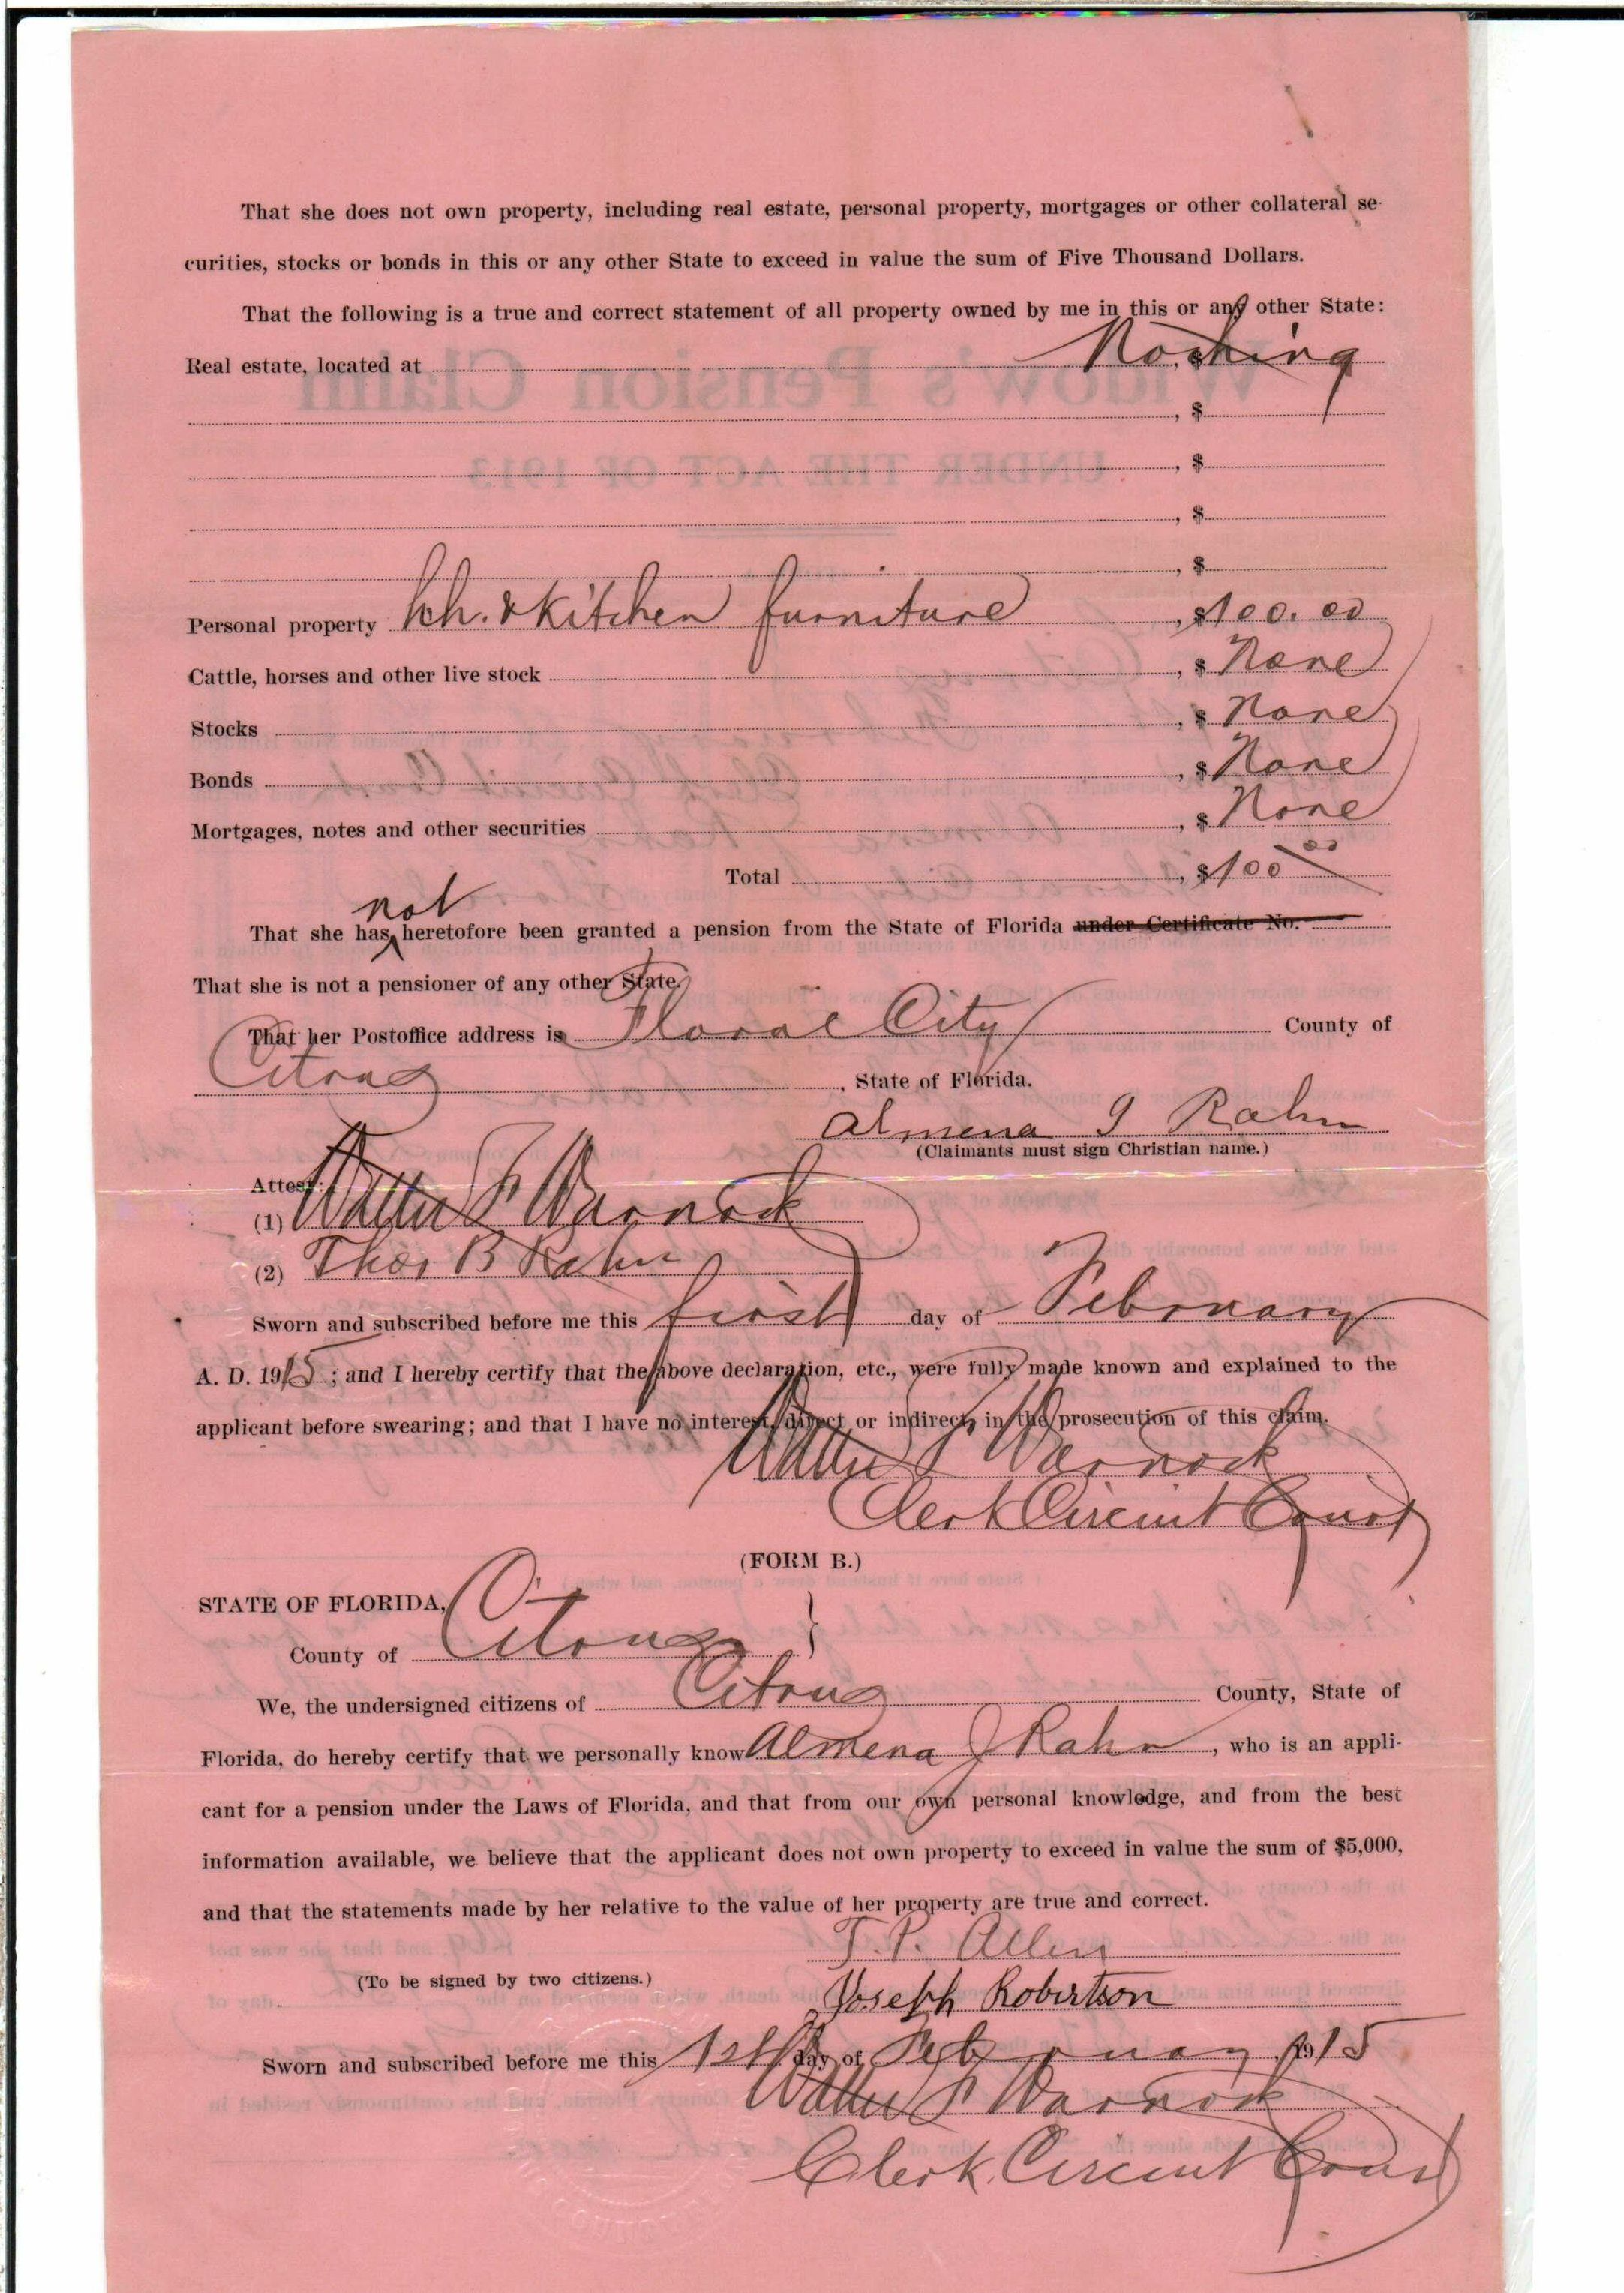 That she does not own property, including real estate, personal property, mortgages or other collateral se-
curities, stocks or bonds in this or any other State to exceed in value the sum of Five Thousand Dollars.
That the following is a true and correct statement of all property owned by me in this or any other State:
Real estate, located at Nothing
, $
, $
, $
, $
Personal property hh. & Kitchen furniture, $100.00
Cattle, horses and other live stock, $ None
Stocks, $ None
Bonds, $ None
Mortgages, notes and other securities, $ None
Total, $100 00
not
That she has heretofore been granted a pension from the State of Florida under Certificate No.
That she is not a pensioner of any other State.
That her Postoffice address is Floral City County of
Citrus, State of Florida.
Almena J Rahn
(Claimants must sign Christian name.)
Attest:
(1) Walter F Warnock
(2) Thos B Rahn
Sworn and subscribed before me this first day of February
A. D. 1915; and I hereby certify that the above declaration, etc., were fully made known and explained to the
applicant before swearing; and that I have no interest, direct or indirect, in the prosecution of this claim.
Walter F Warnock
Clerk Circuit Court
(FORM B.)
STATE OF FLORIDA,
County of Citrus }
We, the undersigned citizens of Citrus County, State of
Florida, do hereby certify that we personally know Almena J Rahn, who is an appli-
cant for a pension under the Laws of Florida, and that from our own personal knowledge, and from the best
information available, we believe that the applicant does not own property to exceed in value the sum of $5,000,
and that the statements made by her relative to the value of her property are true and correct.
T. P. Allen
(To be signed by two citizens.)
Joseph Robertson
Sworn and subscribed before me this 1st day of February, 1915
Walter F Warnock
Clerk Circuit Court